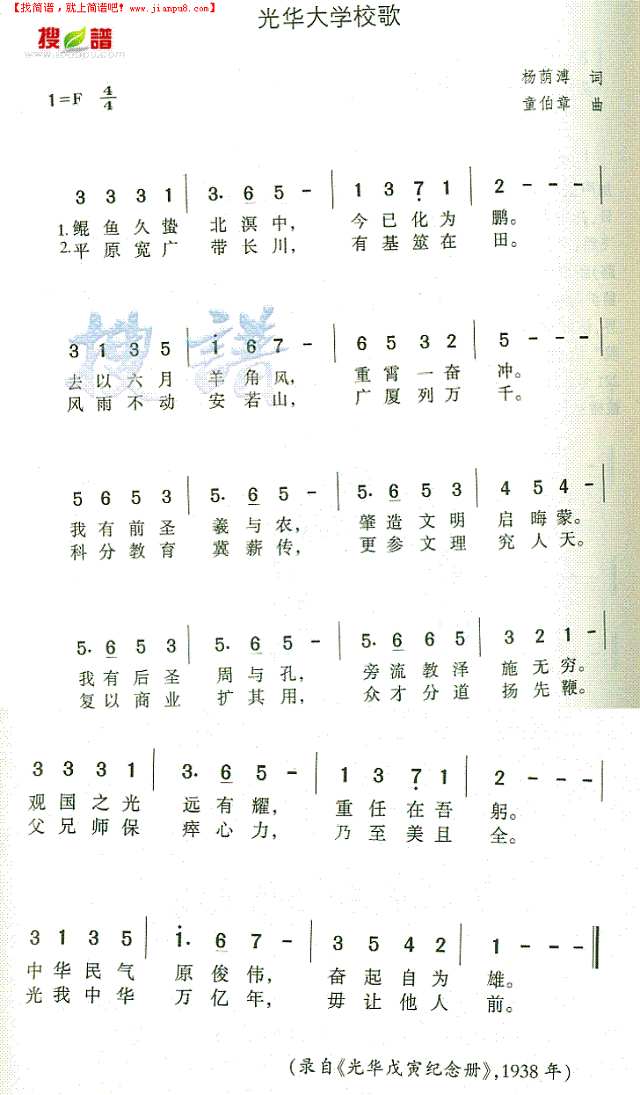 【找简谱，就上简谱吧! www.jianpu8.com】
搜谱
光华大学校歌
杨荫溥 词
1=F 4/4
童伯章 曲
3 3 3 1 | 3. 6 5 - | 1 3 7 1 | 2 - - - |
1.鲲鱼久蛰 北溟中， 今已化为 鹏。
2.平原宽广 带长川， 有基筮在 田。
3 1 3 5 | i 6 7 - | 6 5 3 2 | 5 - - - |
去以六月 羊角风， 重霄一奋 冲。
风雨不动 安若山， 广厦列万 千。
5 6 5 3 | 5. 6 5 - | 5. 6 5 3 | 4 5 4 - |
我有前圣 羲与农， 肇造文明 启晦蒙。
科分教育 冀薪传， 更参文理 究人天。
5. 6 5 3 | 5. 6 5 - | 5. 6 6 5 | 3 2 1 - |
我有后圣 周与孔， 旁流教泽 施无穷。
复以商业 扩其用， 众才分道 扬先鞭。
3 3 3 1 | 3. 6 5 - | 1 3 7 1 | 2 - - - |
观国之光 远有耀， 重任在吾 躬。
父兄师保 瘁心力， 乃至美且 全。
3 1 3 5 | i. 6 7 - | 3 5 4 2 | 1 - - - ‖
中华民气 原俊伟， 奋起自为 雄。
光我中华 万亿年， 毋让他人 前。
(录自《光华戊寅纪念册》,1938年)